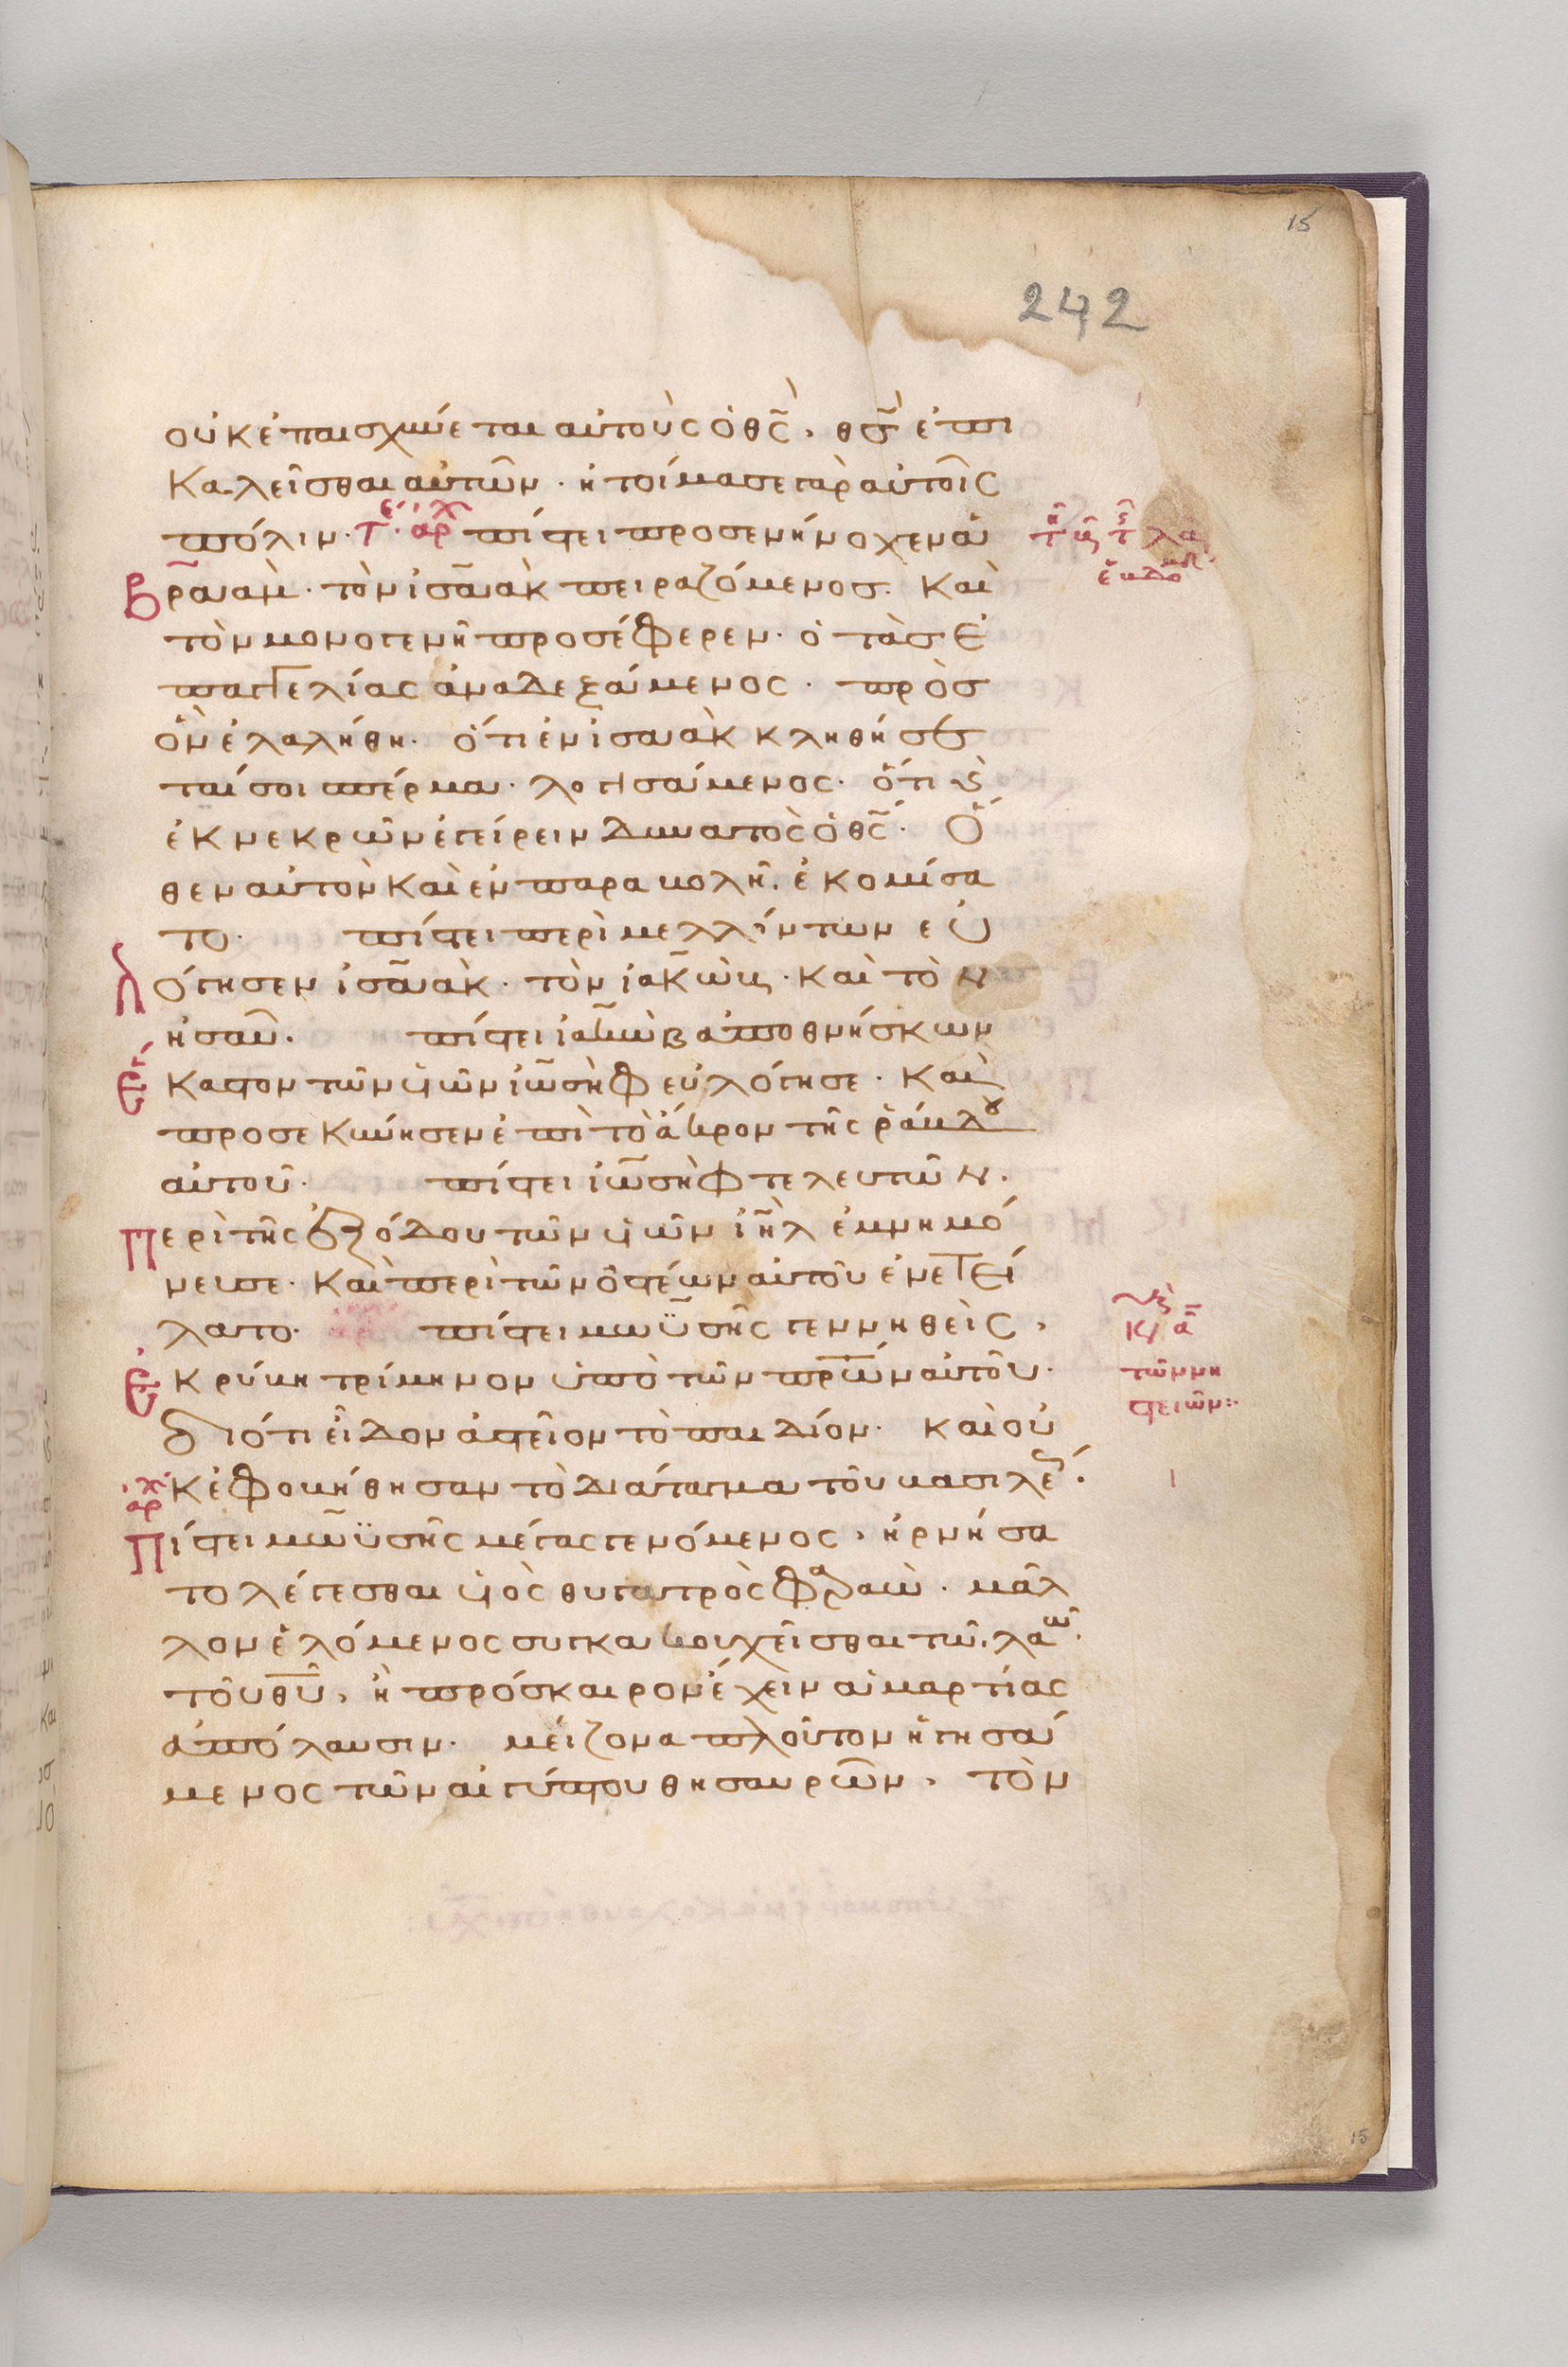 15
242
οὐκ ἐπαισχύνεται αὐτοὺς ὁ θς̃, θς̃ ἐπι
καλεῖσθαι αὐτῶν· ἡτοίμασε γὰρ αὐτοῖς
πόλιν· αρχ πίστει προσενήνοχεν ἀ
βραὰμ· τὸν ἰσαὰκ πειραζόμενος. καὶ
τὸν μονογενῆ προσέφερεν· ὁ τὰς ἐ
παγγελίας ἀναδεξάμενος· πρὸς
ὃν ἐλαλήθη· ὅτι ἐν ἰσαὰκ κληθήσε
ταί σοι σπέρμα· λογισάμενος· ὅτι καὶ
ἐκ νεκρῶν ἐγείρειν δυνατὸς ὁ θς̃· ὅ
θεν αὐτὸν καὶ ἐν παραβολῇ. ἐκομίσα
το· πίστει περὶ μελλόντων εὐ
λόγησεν ἰσαὰκ· τὸν ἰακὼβ· καὶ τὸν
ἠσαῦ. πίστει ἰακὼβ ἀποθνήσκων
ἕκαστον τῶν υἱῶν ἰωσὴφ εὐλόγησε· καὶ
προσεκύνησεν ἐπὶ τὸ ἄκρον τῆς ῥάβδου
αὐτοῦ· πίστει ἰωσὴφ τελευτῶν.
περὶ τῆς ἐξόδου τῶν υἱῶν ἰηλ ἐμνημό
νευσε· καὶ περὶ τῶν ὀστέων αὐτοῦ ἐνετεί
λατο· πίστει μωϋσῆς γεννηθεὶς,
ἐκρύβη τρίμηνον ὑπὸ τῶν πρων αὐτοῦ·
διότι εἶδον ἀστεῖον τὸ παιδίον· καὶ οὐ
κ ἐφοβήθησαν τὸ διάταγμα τοῦ βασιλέως·
αρχ
πίστει μωϋσῆς μέγας γενόμενος, ἠρνήσα
το λέγεσθαι υἱὸς θυγατρὸς φαραώ· μᾶλ
λον ἑλόμενος συγκακουχεῖσθαι τῶ λαῶ·
τοῦ θυ, ἢ πρόσκαιρον ἔχειν ἁμαρτίας
ἀπόλαυσιν· μείζονα πλοῦτον ἡγησά
μενος τῶν αἰγύπτου θησαυρῶν, τὸν
κυ α
τῶν νη
στειῶν:
15